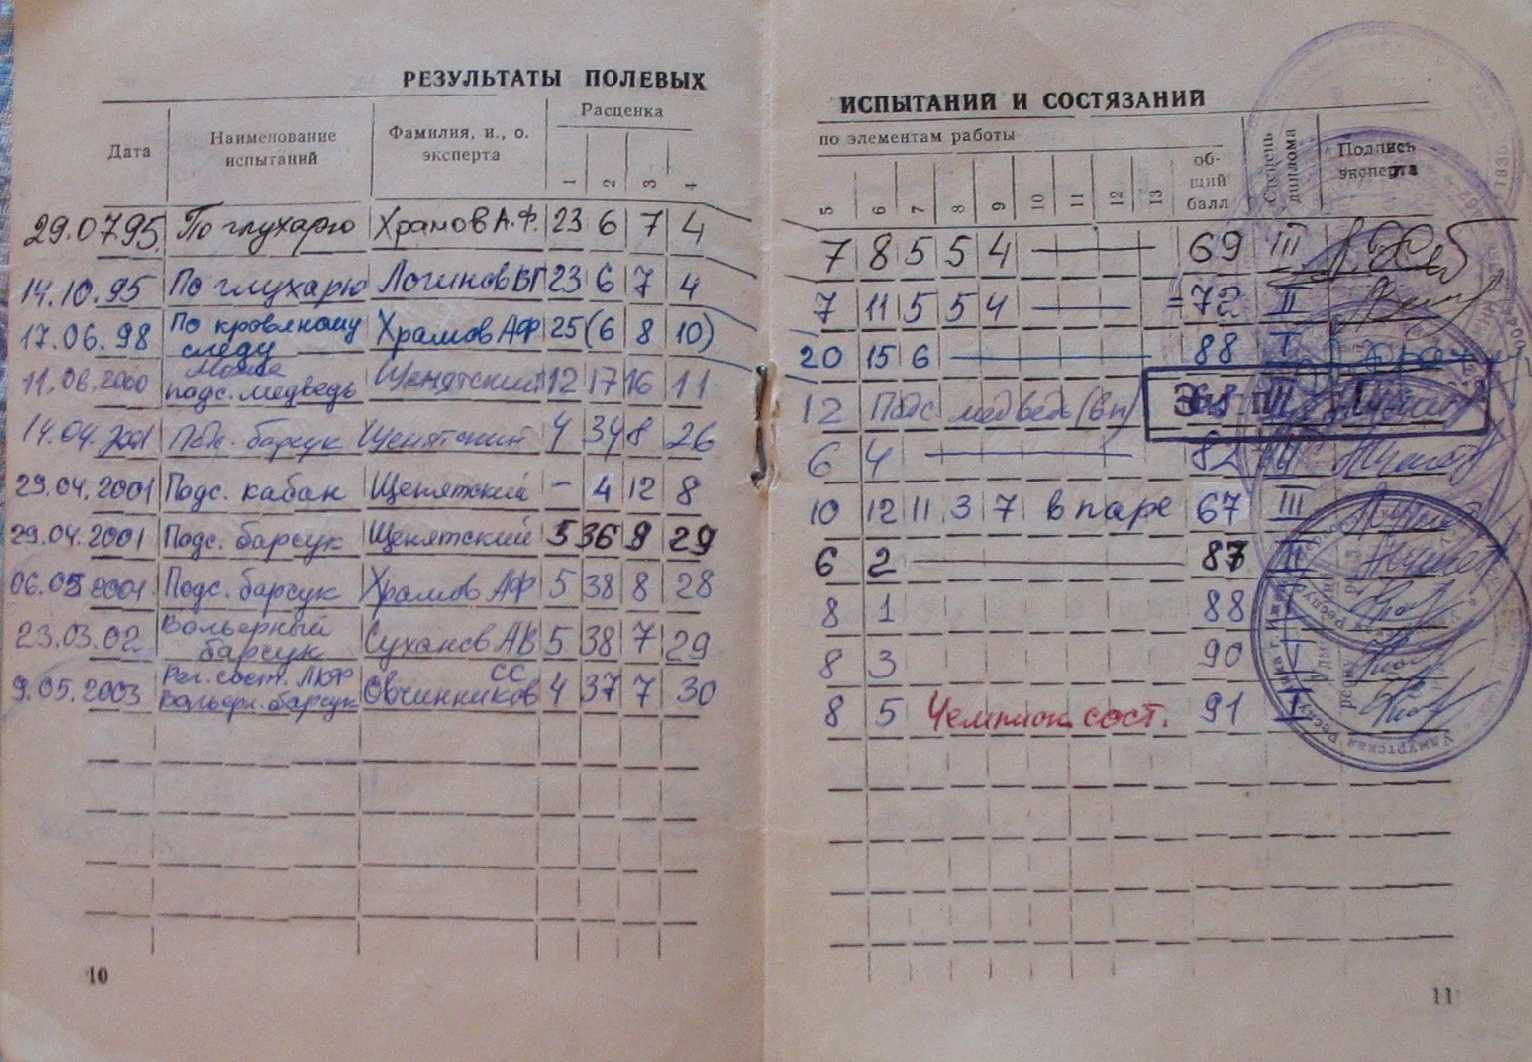 РЕЗУЛЬТАТЫ ПОЛЕВЫХ
Дата
Наименование испытаний
Фамилия, и., о. эксперта
Расценка
1 2 3 4
29.07.95 По глухарю Храмов А.Ф. 23 6 7 4
14.10.95 По глухарю Логинов ВГ 23 6 7 4
17.06.98 По кровяному следу Храмов АФ 25 (6 8 10)
11.06.2000 подс. медведь Щенятский 12 17 16 11
14.04.2001 Подс. барсук Щенятский 4 34 8 26
29.04.2001 Подс. кабан Щенятский – 4 12 8
29.04.2001 Подс. барсук Щенятский 5 36 9 29
2001 Подс. барсук Храмов АФ 5 38 8 28
23.03.02 Вольерный барсук Суханов АВ 5 38 7 29
9.05.2003 Рег. сост. ЛКФ вольерн. барсук Овчинников СС 4 37 7 30
10
ИСПЫТАНИЙ И СОСТЯЗАНИЙ
по элементам работы
5 6 7 8 9 10 11 12 13
общий балл
Степень диплома
Подпись эксперта
7 8 5 5 4 — 69 III
7 11 5 5 4 — =72 II
20 15 6 — 88 I
12 Подс медведь (вп) 68 III
6 4 — 82 II
10 12 11 3 7 в паре 67 III
6 2 — 87 II
8 1 88 I
8 3 90 I
8 5 Чемпион сост. 91 I
Удмуртская
11